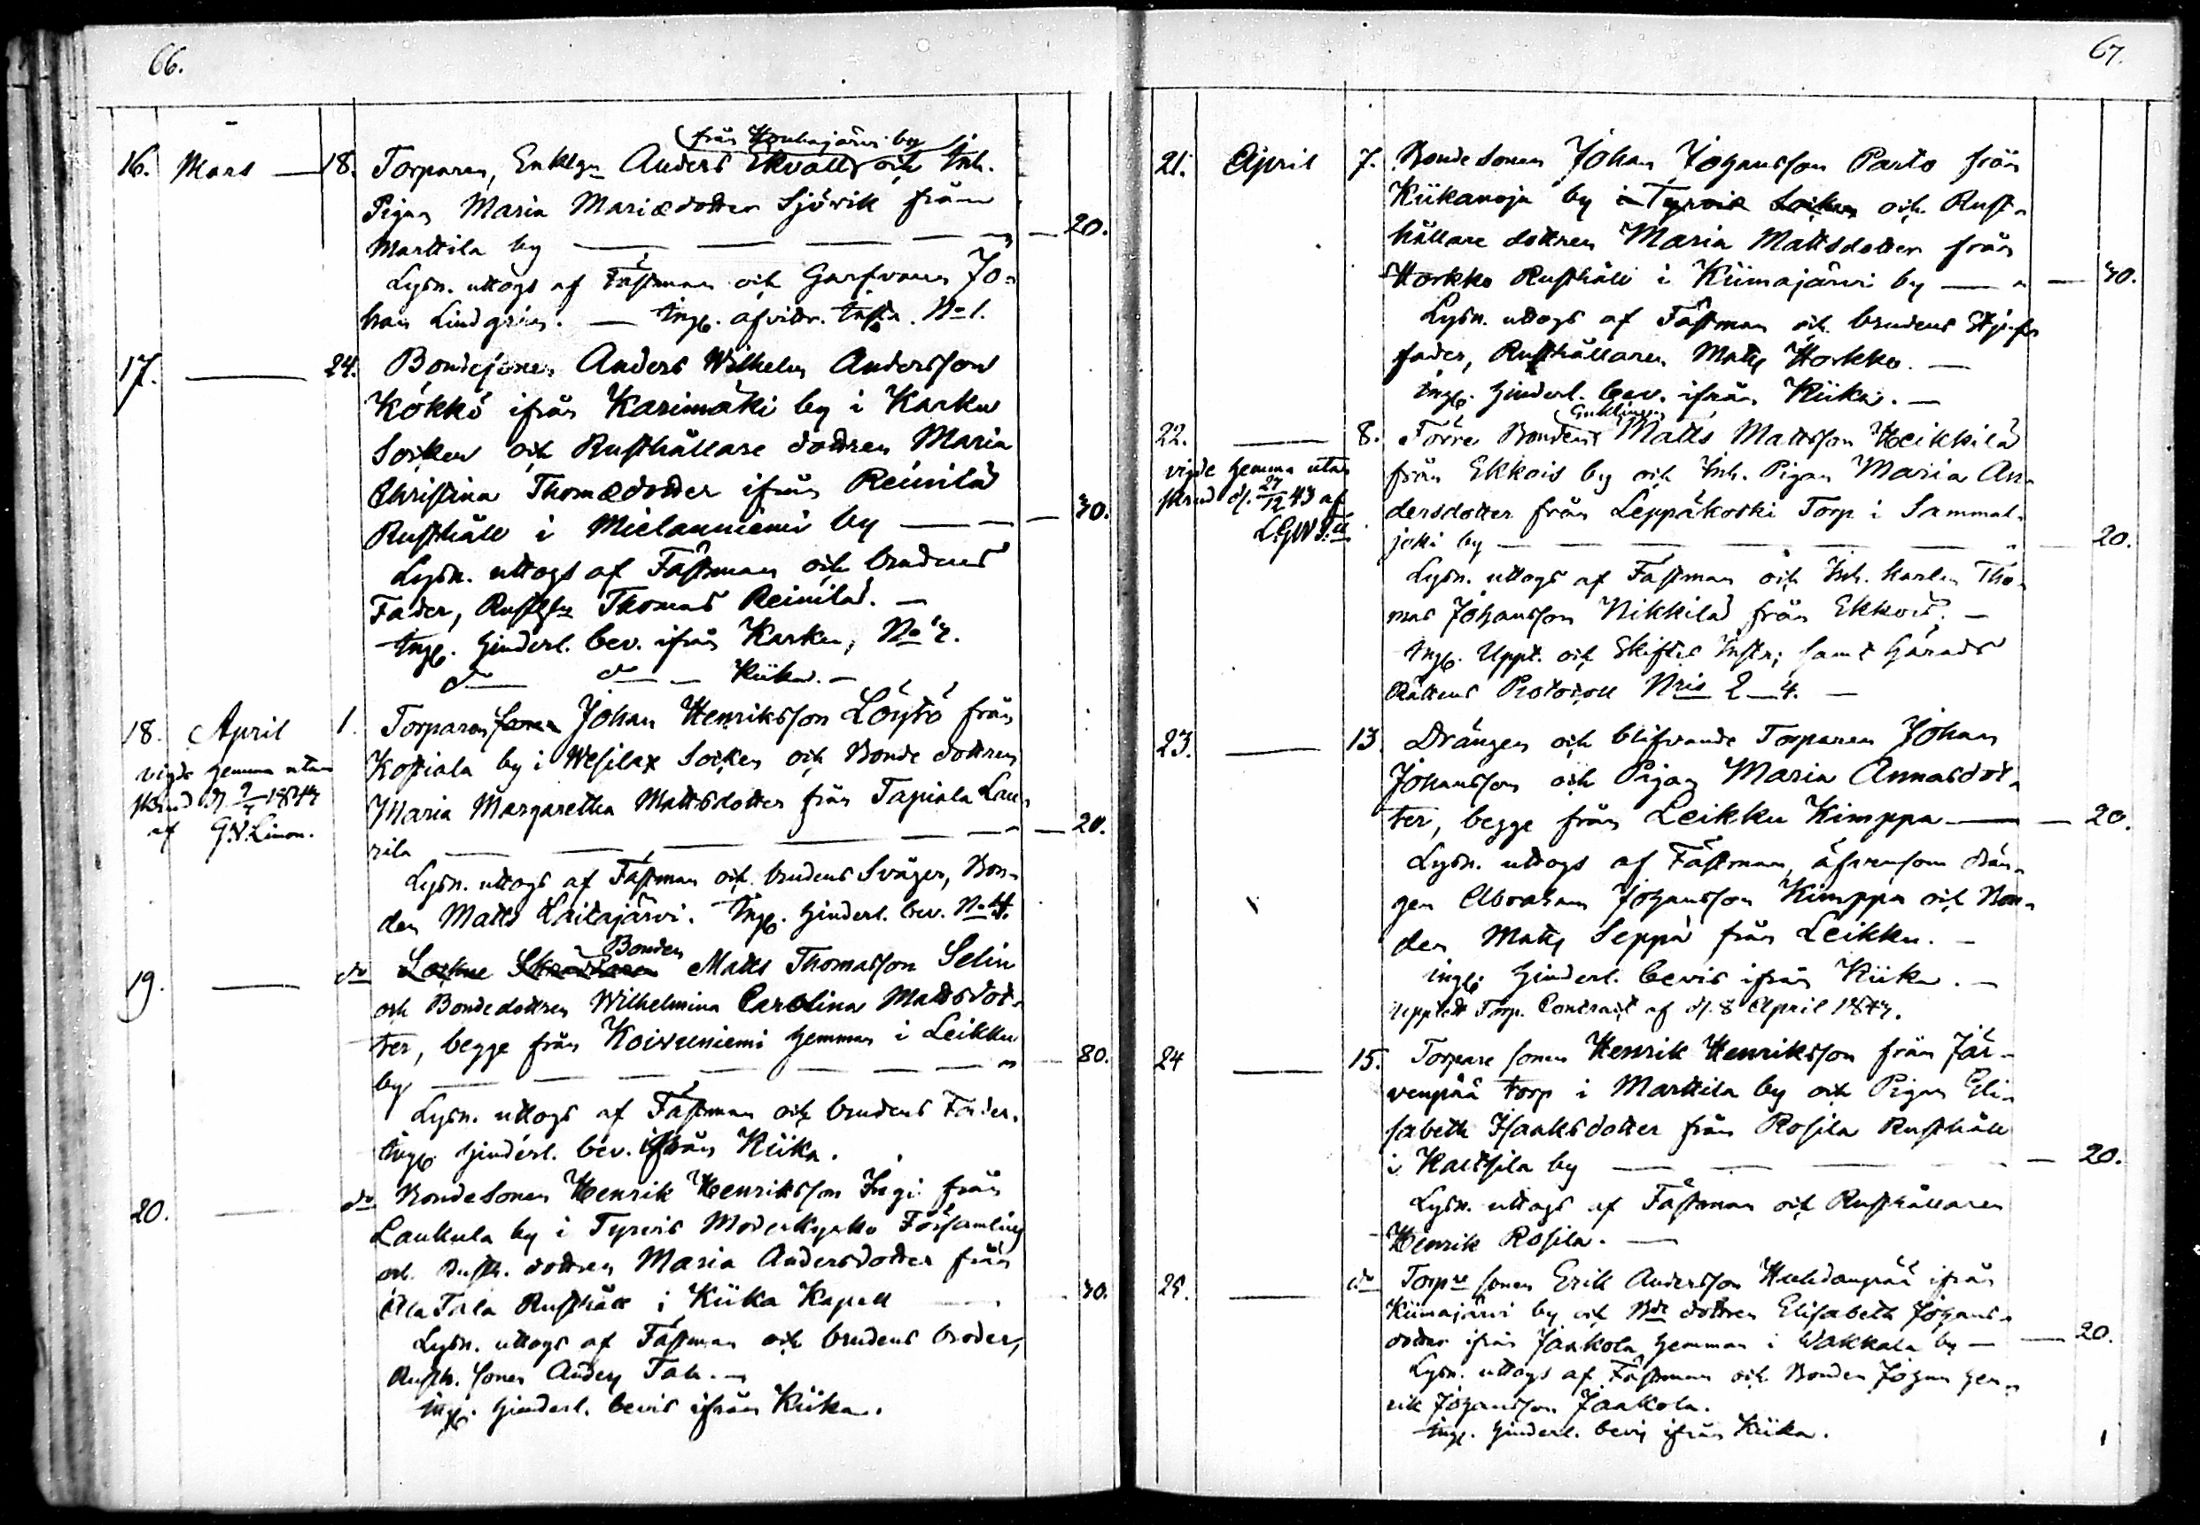 66.
16. Mars 18. Torparen, Enklgn Anders Ekvall (från Houhajärvi by) och Inh.
Pigan Maria Mariædotter Sjövik från
Marttila by — 20.
Lysn. uttogs af Fästman och Garfvaren Jo-
han Lindgrén. — Ing. afvittr. Instr. No 1.
17. — 24. Bondesonen Anders Wilhelm Andersson
Kökkö ifrån Karimäki by i Karku
Socken och Rusthållare dottren Maria
Christina Thomædotter ifrån Reinilä
Rusthåll i Mielanniemi by — 40.
Lysn. uttogs af Fästman och brudens
Fader, Rusth. Thomas Reinilä. —
Ing. hinderl. bev. ifrån Karku, No 2.
do do — Kiika. —
18. April 1. Torparesonen Johan Henriksson Löytö från
Kostiala by i Wesilax Socken och Bonde dottren
Maria Margaretha Mattsdotter från Tapiala Lau-
rila — 20.
vigde hemma utan
skrud d. 1847
af G.W. Limon.
Lysn. uttogs af Fästman och brudens Svåger, Bon-
den Matts Laitajärvi. Ing. hinderl. bev. No 4.
19. — do Sockne Skräddaren Bonden Matts Thomasson Selin
och Bondedottren Wilhelmina Carolina Mattsdot-
ter, begge från Koivuniemi hemman i Leikku
by — 80.
Lysn. uttogs af Fästman och brudens Fader.
Ing. hinderl. bev. ifrån Kiika.
20. — do Bondesonen Henrik Henriksson från
Laukula by i Tyrvis Moderkyrko Församling
och Rusth. dottren Maria Andersdotter från
Alla Tala Rusthåll i Kiika Kapell — 40.
Lysn. uttogs af Fästman och brudens broder,
Rusth. sonen Anders Tala. —
Ing. hinderl. bevis ifrån Kiika.
67.
21. April 7. Bondesonen Johan Johansson Parto från
Kiikanoja by i Tyrvis Socken och Rust-
hållare dottren Maria Mattsdotter från
Horkko Rusthåll i Kiimajärvi by — 40.
Lysn. uttogs af Fästman och brudens Styf-
fader, Rusthållaren Matts Horkko. —
Ing. hinderl. bev. ifrån Kiika. —
22. — 8. Förre Bonden Enklingen Matts Mattsson Heikkilä
från Ekkois by och Inh. Pigan Maria An-
dersdotter från Leppäkoski Torp i Sammal-
joki by — 20.
vigde hemma utan
skrud d. 27/12 47 af
Lysn. uttogs af Fästman och Inh. karlen Tho-
mas Johansson Nikkilä från Ekkois. —
Ing. Uppt. och Skiftes Instr; samt Härads
Rättens Protocoll Nris 2—4. —
23. — 13. Drängen och blifvande Torparen Johan
Johansson och Pigan Maria Annasdot-
ter, begge från Leikku Kimppa — 20.
Lysn. uttogs af Fästman, äfvensom drän-
gen Abraham Johansson Kimppa och Bon-
den Matts Seppä från Leikku. —
Ing. hinderl. bevis ifrån Kiika. —
upptedt Torp. Contract af d. 8 April 1847.
24 — 15. Torpare sonen Henrik Henriksson från Jär-
venpää torp i Marttila by och Pigan Eli-
sabeth Isaksdotter från Rosila Rusthåll
i Kaltsila by — 20.
Lysn. uttogs af Fästman och Rusthållaren
Henrik Rosila. —
25. — do Torpre sonen Erik Andersson Huhdanpää ifrån
Kiimajärvi by och Bde dottren Elisabeth Johans-
dotter ifrån Jaakola hemman i Wakkala by — 20.
Lysn. uttogs af Fästman och Bonden Johan Hen-
rik Johansson Jaakola.
Ing. hinderl. bevis ifrån Kiika.